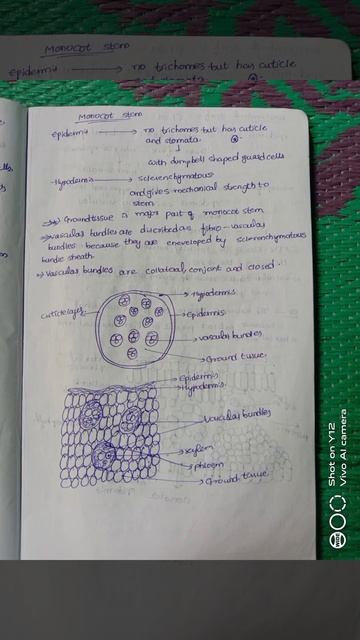 Monocot stem
epidermis → no trichomes but has cuticle
and stomata
Monocot stem
epidermis → no trichomes but has cuticle
and stomata.
with dumpbell shaped guard cells
Hypodermis → sclerenchymatous
and gives mechanical strength to
stem
Ground tissue is major part of monocot stem
vascular bundles are discribed as fibro-vascular
bundles because they are enveloped by sclerenchymatous
bundle sheath.
Vascular bundles are collateral, conjoint and closed.
Hypodermis
Cuticle layer
Epidermis
vascular bundles
Ground tissue
Epidermis
Hypodermis
Vascular bundles
xylem
phloem
Ground tissue
Shot on Y12
Vivo AI camera